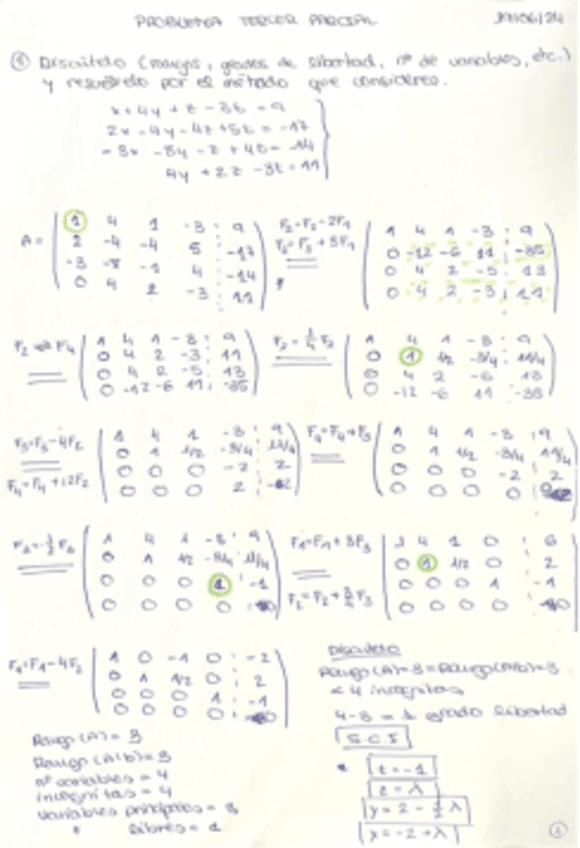 PROBLEMA TERCER PARCIAL 19/06/24
① Discútelo (rangos, grados de libertad, nº de variables, etc.)
y resuélvelo por el método que consideres.
x + 4y + z - 3t = 9
2x - 4y - 4z + 5t = -17
-3x - 8y - z + 4t = -14
4y + 2z - 3t = 11
A =
1 4 1 -3 9
2 -4 -4 5 -17
-3 -8 -1 4 -14
0 4 2 -3 11
F2=F2-2F1
F3=F3+3F1
1 4 1 -3 9
0 -12 -6 11 -35
0 4 2 -5 13
0 4 2 -3 11
F2 ⇌ F4
1 4 1 -3 9
0 4 2 -3 11
0 4 2 -5 13
0 -12 -6 11 -35
F2=1/4 F2
1 4 1 -3 9
0 1 1/2 -3/4 11/4
0 4 2 13
0 -12 -6 11 -35
F3=F3-4F2
F4=F4+12F2
1 4 1 -3 9
0 1 1/2 -3/4 11/4
0 0 0 -2 2
0 0 0 2
F4=F4+F3
1 4 1 -3 9
0 1 1/2 -3/4 11/4
0 0 0 -2 2
0 0 0 0
F3=-1/2 F3
1 4 1 -3 9
0 1 1/2 -3/4 11/4
0 0 0 1 -1
0 0 0 0
F1=F1+3F3
F2=F2+3/4F3
1 4 1 0 6
0 1 1/2 0 2
0 0 0 1 -1
0 0 0 0
F1=F1-4F2
1 0 -1 0 -2
0 1 1/2 0 2
0 0 0 1 -1
0 0 0 0
Rango (A) = 3
Rango (A|b) = 3
nº variables = 4
incógnitas = 4
variables principales = 3
libres = 1
Discútelo
Rango (A)=3=Rango(A|b)=3
< 4 incógnitas
4-3 = 1 grado libertad
S.C.I
t = -1
z = λ
y = 2 - 1/2 λ
x = -2 + λ